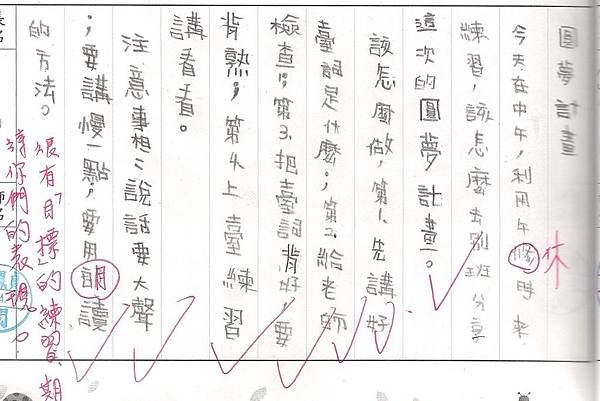 圓夢計畫
今天在中午,利用午修時來
休
練習,該怎麼去別班分享
這次的圓夢計畫。
該怎麼做,第1、先講好
臺詞是什麼;第2、給老師
檢查;第3、把臺詞背好,要
背熟;第4、上臺練習
講看看。
注意事相:說話要大聲
;要講慢一點;要用眀讀
的方法。
很有「目標」的練習,期
待你們的表現。